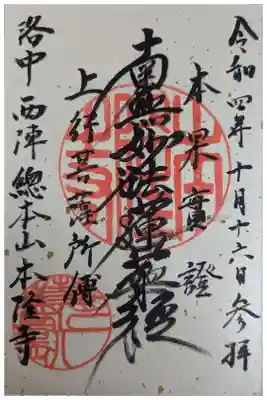 令和四年十月十六日参拝
本果實證
南無妙法蓮華経
上行菩薩所傳
洛中 西陣 總本山本隆寺